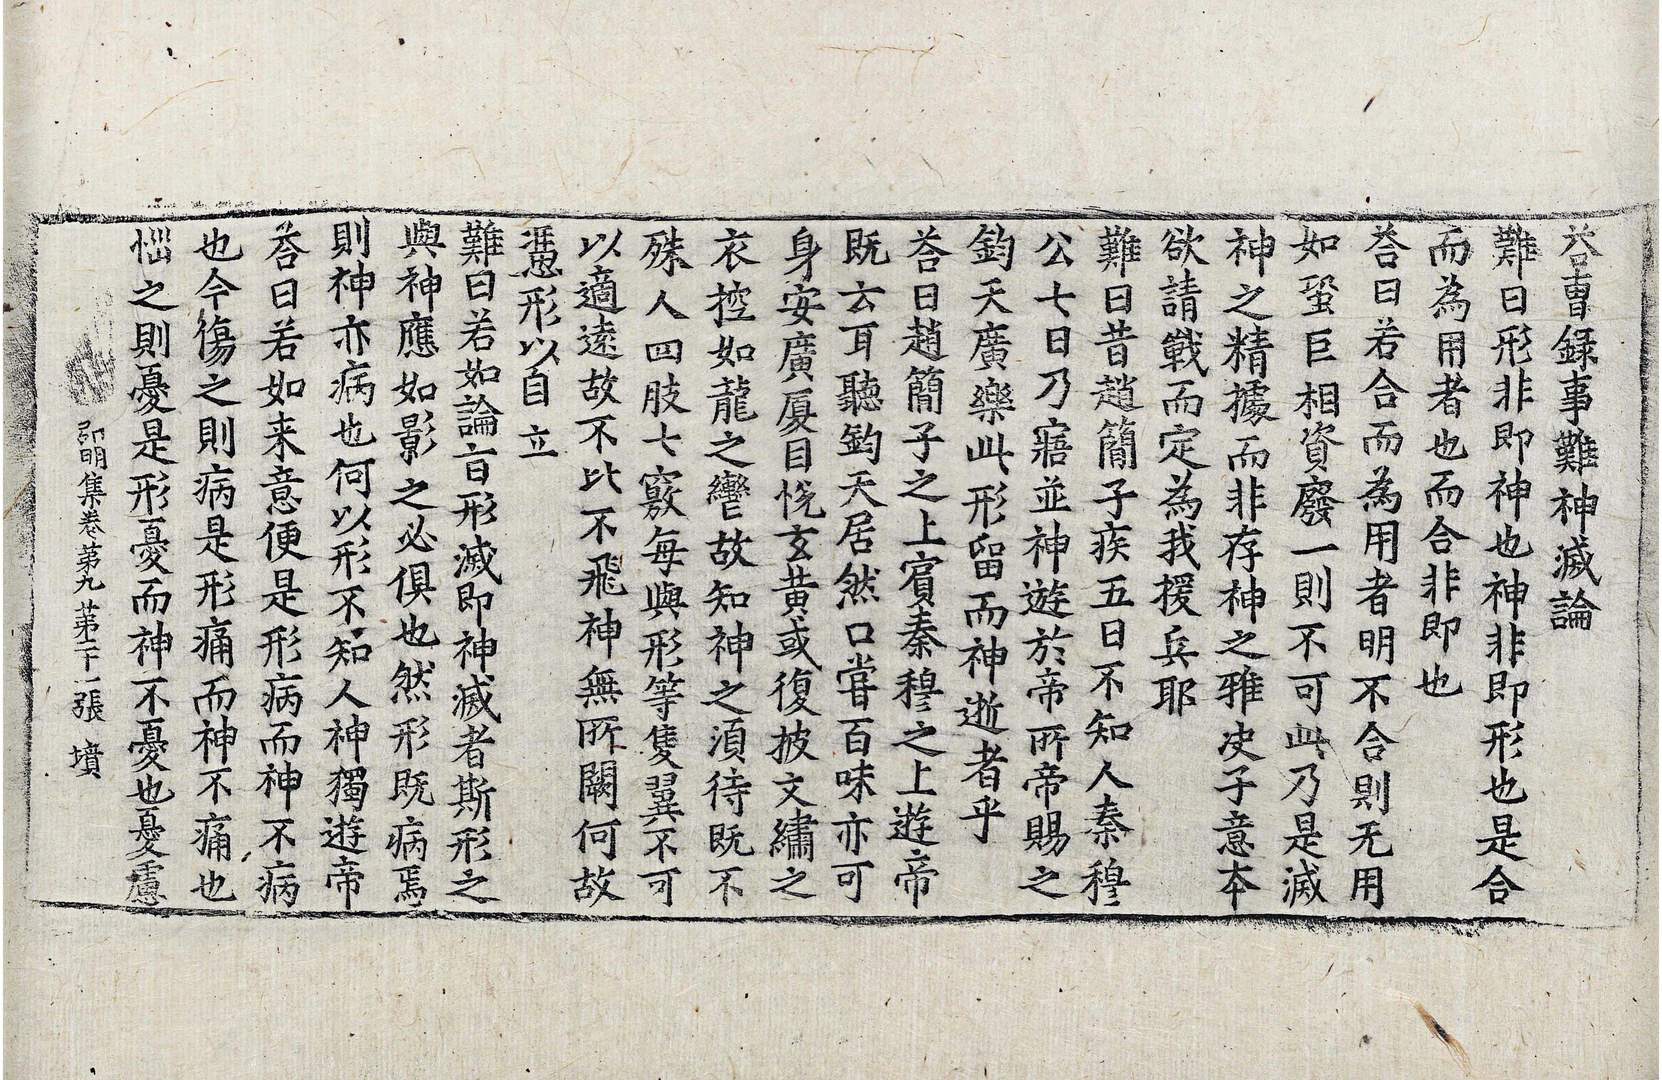 荅曹録事難神滅論
難曰形非即神也神非即形也是合
而為用者也而合非即也
荅曰若合而為用者明不合則无用
如蛩巨相資廢一則不可此乃是滅
神之精據而非存神之雅决子意本
欲請戰而定為我援兵耶
難曰昔趙簡子疾五日不知人秦穆
公七日乃寤並神遊於帝所帝賜之
鈞天廣樂此形留而神逝者乎
荅曰趙簡子之上賔秦穆之上遊帝
既云耳聽鈞天居然口甞百味亦可
身安廣厦目恱玄黄或復披文繡之
衣控如龍之轡故知神之湏待既不
殊人四肢七竅每與形等隻翼不可
以適遠故不比不飛神無所闕何故
憑形以自立
難曰若如論言形滅即神滅者斯形之
與神應如影之必俱也然形既病焉
則神亦病也何以形不知人神獨遊帝
荅曰若如来意便是形病而神不病
也今傷之則病是形痛而神不痛也
惱之則憂是形憂而神不憂也憂慮
弘明集卷第九 第二十一張 墳